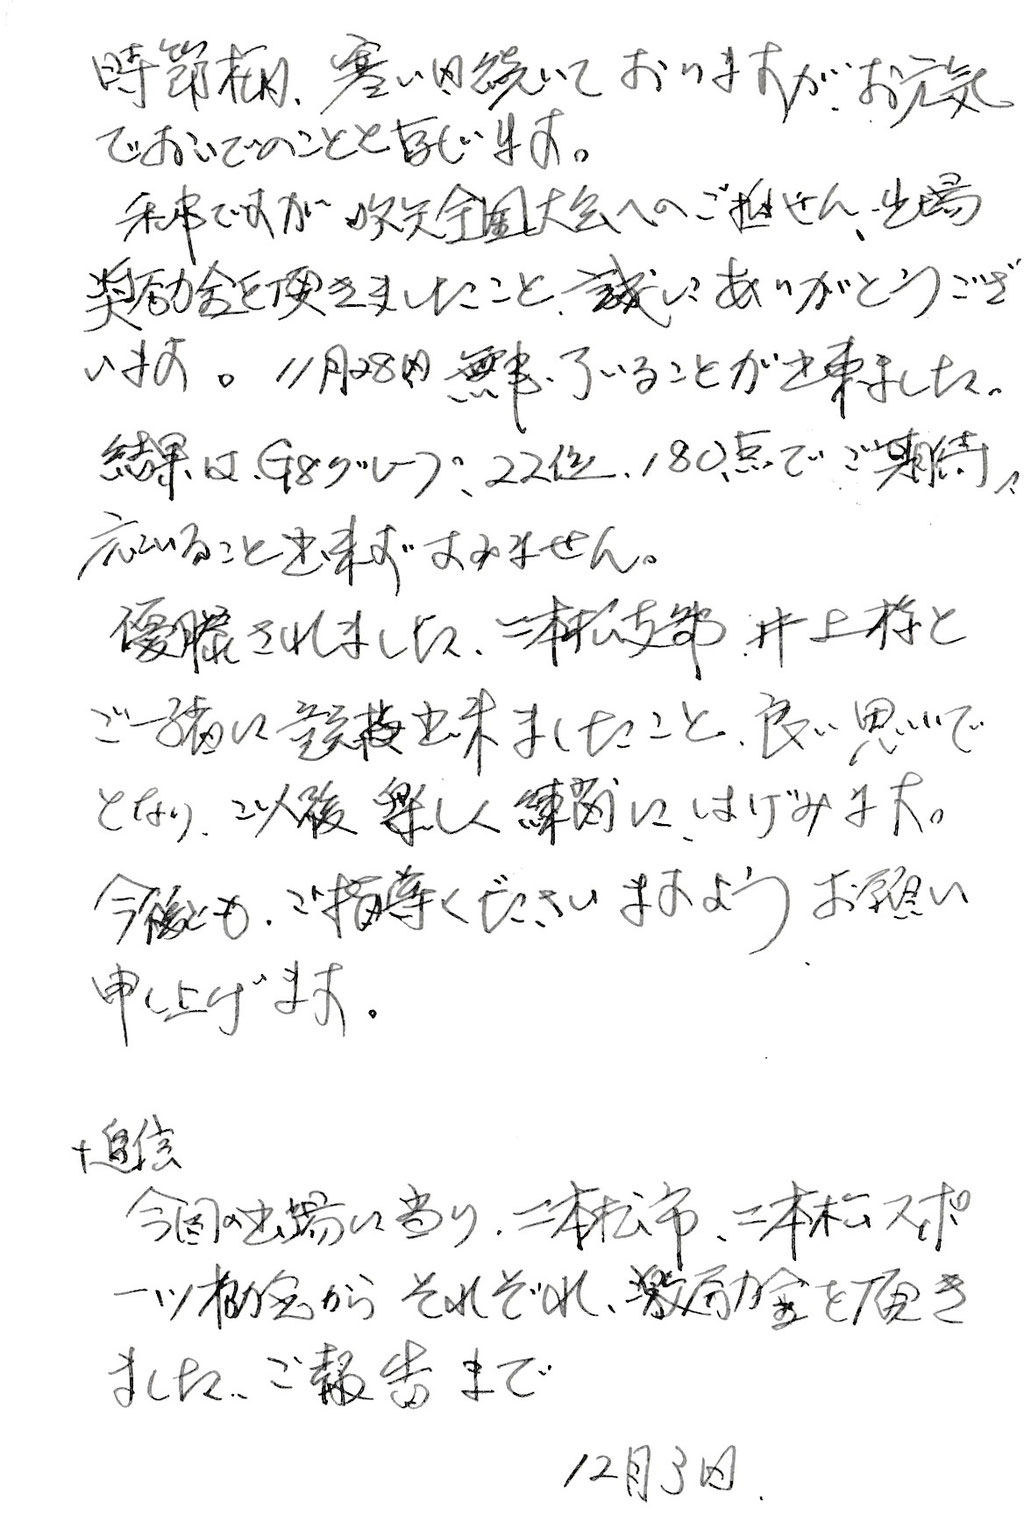 時節柄、寒い日続いておりますが、お元気
でおいでのことと存じます。
末筆ですが 吹矢全国大会へのご推せん、出場
奨励金を頂きましたこと、誠にありがとうござ
います。11月28日 無事、了いることが出来ました。
結果は、G8グループ、22位、180点で ご期待に
応いること出来ずすみません。
優勝されました、二本松支部 井上様と
ご一緒に競技出来ましたこと、良い思いで
となり、以後 楽しく練習に、はげみます。
今後とも、ご指導くださいますよう お願い
申し上げます。
追信
今回の出場に当り、二本松市、二本松スポ
ーツ協会から それぞれ、激励金を頂き
ました、ご報告まで
12月3日